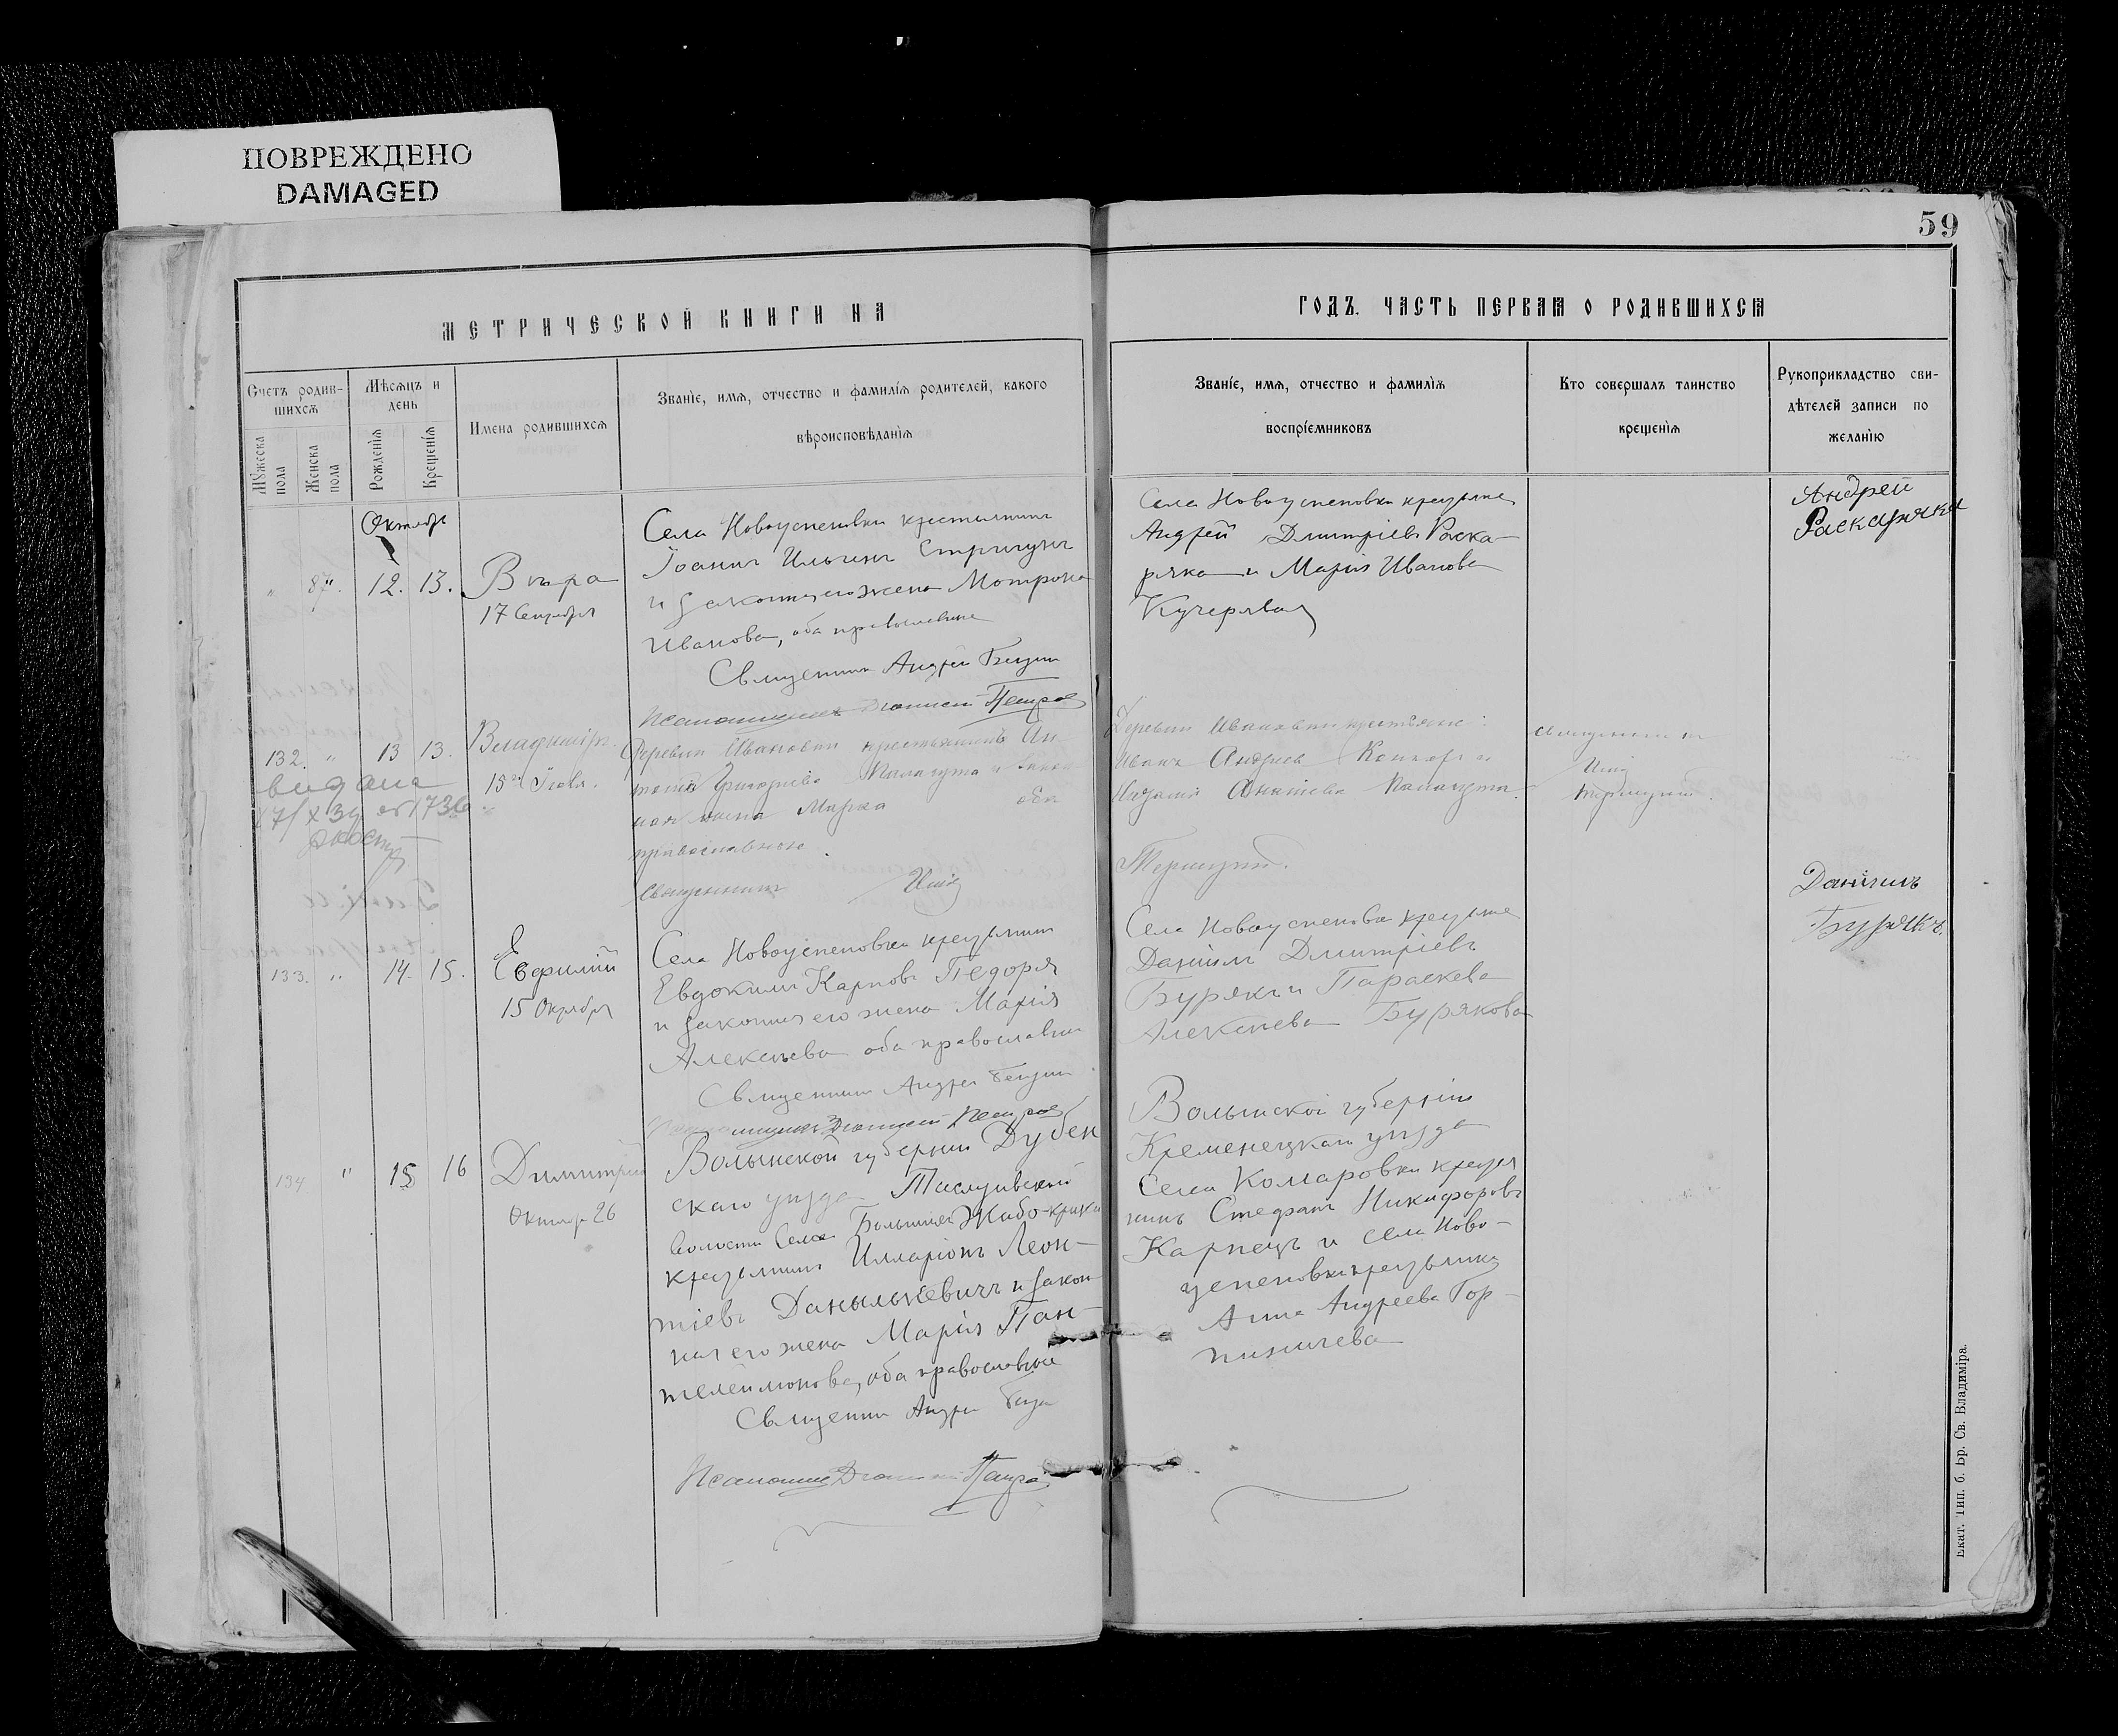 ПОВРЕЖДЕНО
DAMAGED
59
МЕТРИЧЕСКОЙ КНИГИ НА
ГОДЪ. ЧАСТЬ ПЕРВАЯ О РОДИВШИХСЯ
Счетъ родив-
шихсѧ
Мꙋжеска
пола
Женска
пола
Мѣсѧцъ и
день
Рожденїѧ
Крещенїѧ
Имена родившихсѧ
Званїе, имѧ, отчество и фамилїѧ родителей, какого
вѣроисповѣданїѧ
Званїе, имѧ, отчество и фамилїѧ
воспрїемниковъ
Кто совершалъ таинство
крещенїѧ
Рукоприкладство сви-
дѣтелей записи по
желанїю
Октябр
" 87. 12. 13.
Вѣра
17 Сентября
Села Новоуспеновки крестьянинъ
Іоаннъ Ильинъ Стригунъ
и законная его жена Мотрона
Иванова, оба православные
Священникъ Андрей
Псаломщикъ Дионисій Петров
Села Новоуспеновки крестьяне
Андрей Дмитріевъ Раска-
ряка и Марія Иванова
Кучерявая
Андрей
Раскаряка
132. " 13 13.
видана
Владиміръ
15го Іюля.
Деревни Ивановки крестьянинъ Ан-
Григорьевъ Паламута и закон-
ная жена Марѳа оба
православные
Священникъ
Деревни Ивановки крестьяне:
Иванъ Андреевъ и
Паламута.
Священникъ
133. " 14. 15.
Евфимій
15 Октября
Села Новоуспеновки крестьянинъ
Евдокимъ Карповъ Педоря
и законная его жена Марія
Алексѣева оба православные
Священникъ Андрей
Дионисій Петров
Села Новоуспеновки крестьяне
Даніилъ Дмитріевъ
Бурякъ и Параскева
Алексѣева Бурякова
Даніилъ
Бурякъ.
134 " 15 16
Димитрій
Октября 26
Волынской губерніи Дубен
скаго уѣзда
волости Села Большихъ Жабо-крики
крестьянинъ Илларіонъ Леон-
тіевъ Данылькевичъ и закон
ная его жена Марія Пан-
телеимонова, оба православные
Священникъ Андрей
Псаломщ Дионисій Петров
Волынской губерніи
Кременецкаго уѣзда
Села Комаровки крестья
нинъ Стефанъ Никифоровъ
Карпецъ и села Ново-
успеновки крестьянка
Анна Андреева Гор-
Екат. Тип. б. Бр. Св. Владиміра.